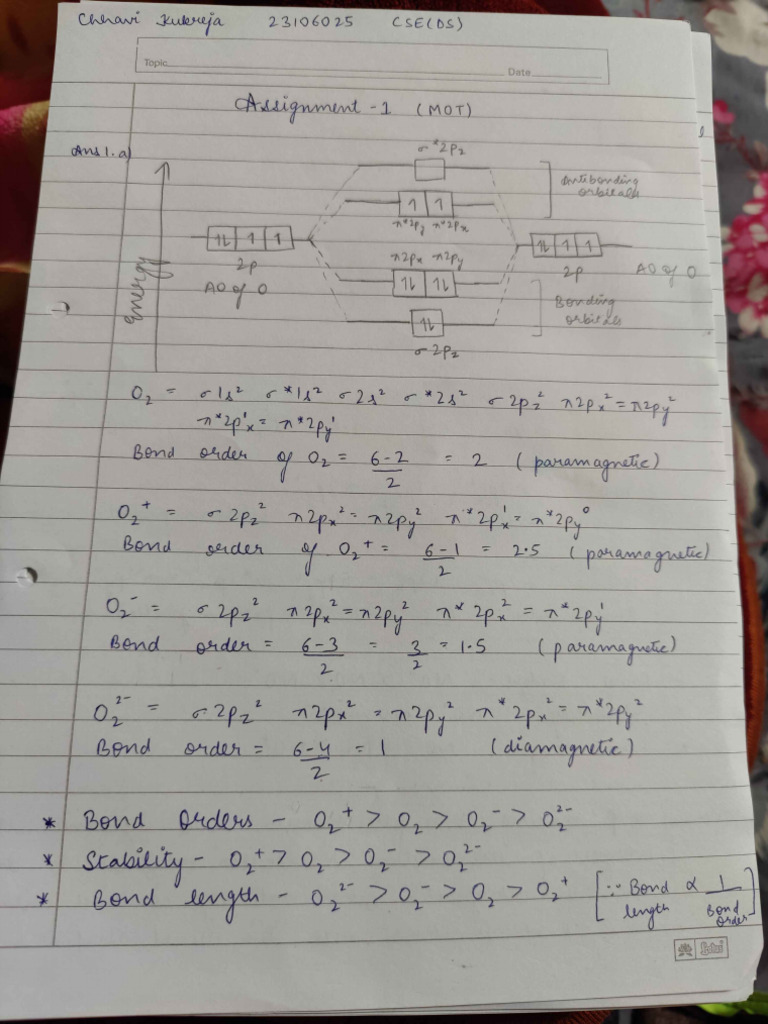 Chhavi Kukreja 23106025 CSE(DS)
Topic Date
Assignment -1 (MOT)
Ans 1. a)
σ*2pz
Antibonding orbitals
↿ ↿
π*2py π*2px
⥮ ↿ ↿
⥮ ↿ ↿
2p
2p
AO of O
AO of O
Energy
π2px π2py
⥮ ⥮
Bonding orbitals
⥮
σ2pz
O₂ = σ1s² σ*1s² σ2s² σ*2s² σ2pz² π2px² = π2py²
π*2px¹ = π*2py¹
Bond order of O₂ = 6-2/2 = 2 (paramagnetic)
O₂⁺ = σ2pz² π2px² = π2py² π*2px¹ = π*2py⁰
Bond order of O₂⁺ = 6-1/2 = 2.5 (paramagnetic)
O₂⁻ = σ2pz² π2px² = π2py² π*2px² = π*2py¹
Bond order = 6-3/2 = 3/2 = 1.5 (paramagnetic)
O₂²⁻ = σ2pz² π2px² = π2py² π*2px² = π*2py²
Bond order = 6-4/2 = 1 (diamagnetic)
* Bond orders - O₂⁺ > O₂ > O₂⁻ > O₂²⁻
* Stability - O₂⁺ > O₂ > O₂⁻ > O₂²⁻
* Bond length - O₂²⁻ > O₂⁻ > O₂ > O₂⁺ [∵ Bond length ∝ 1/Bond order]